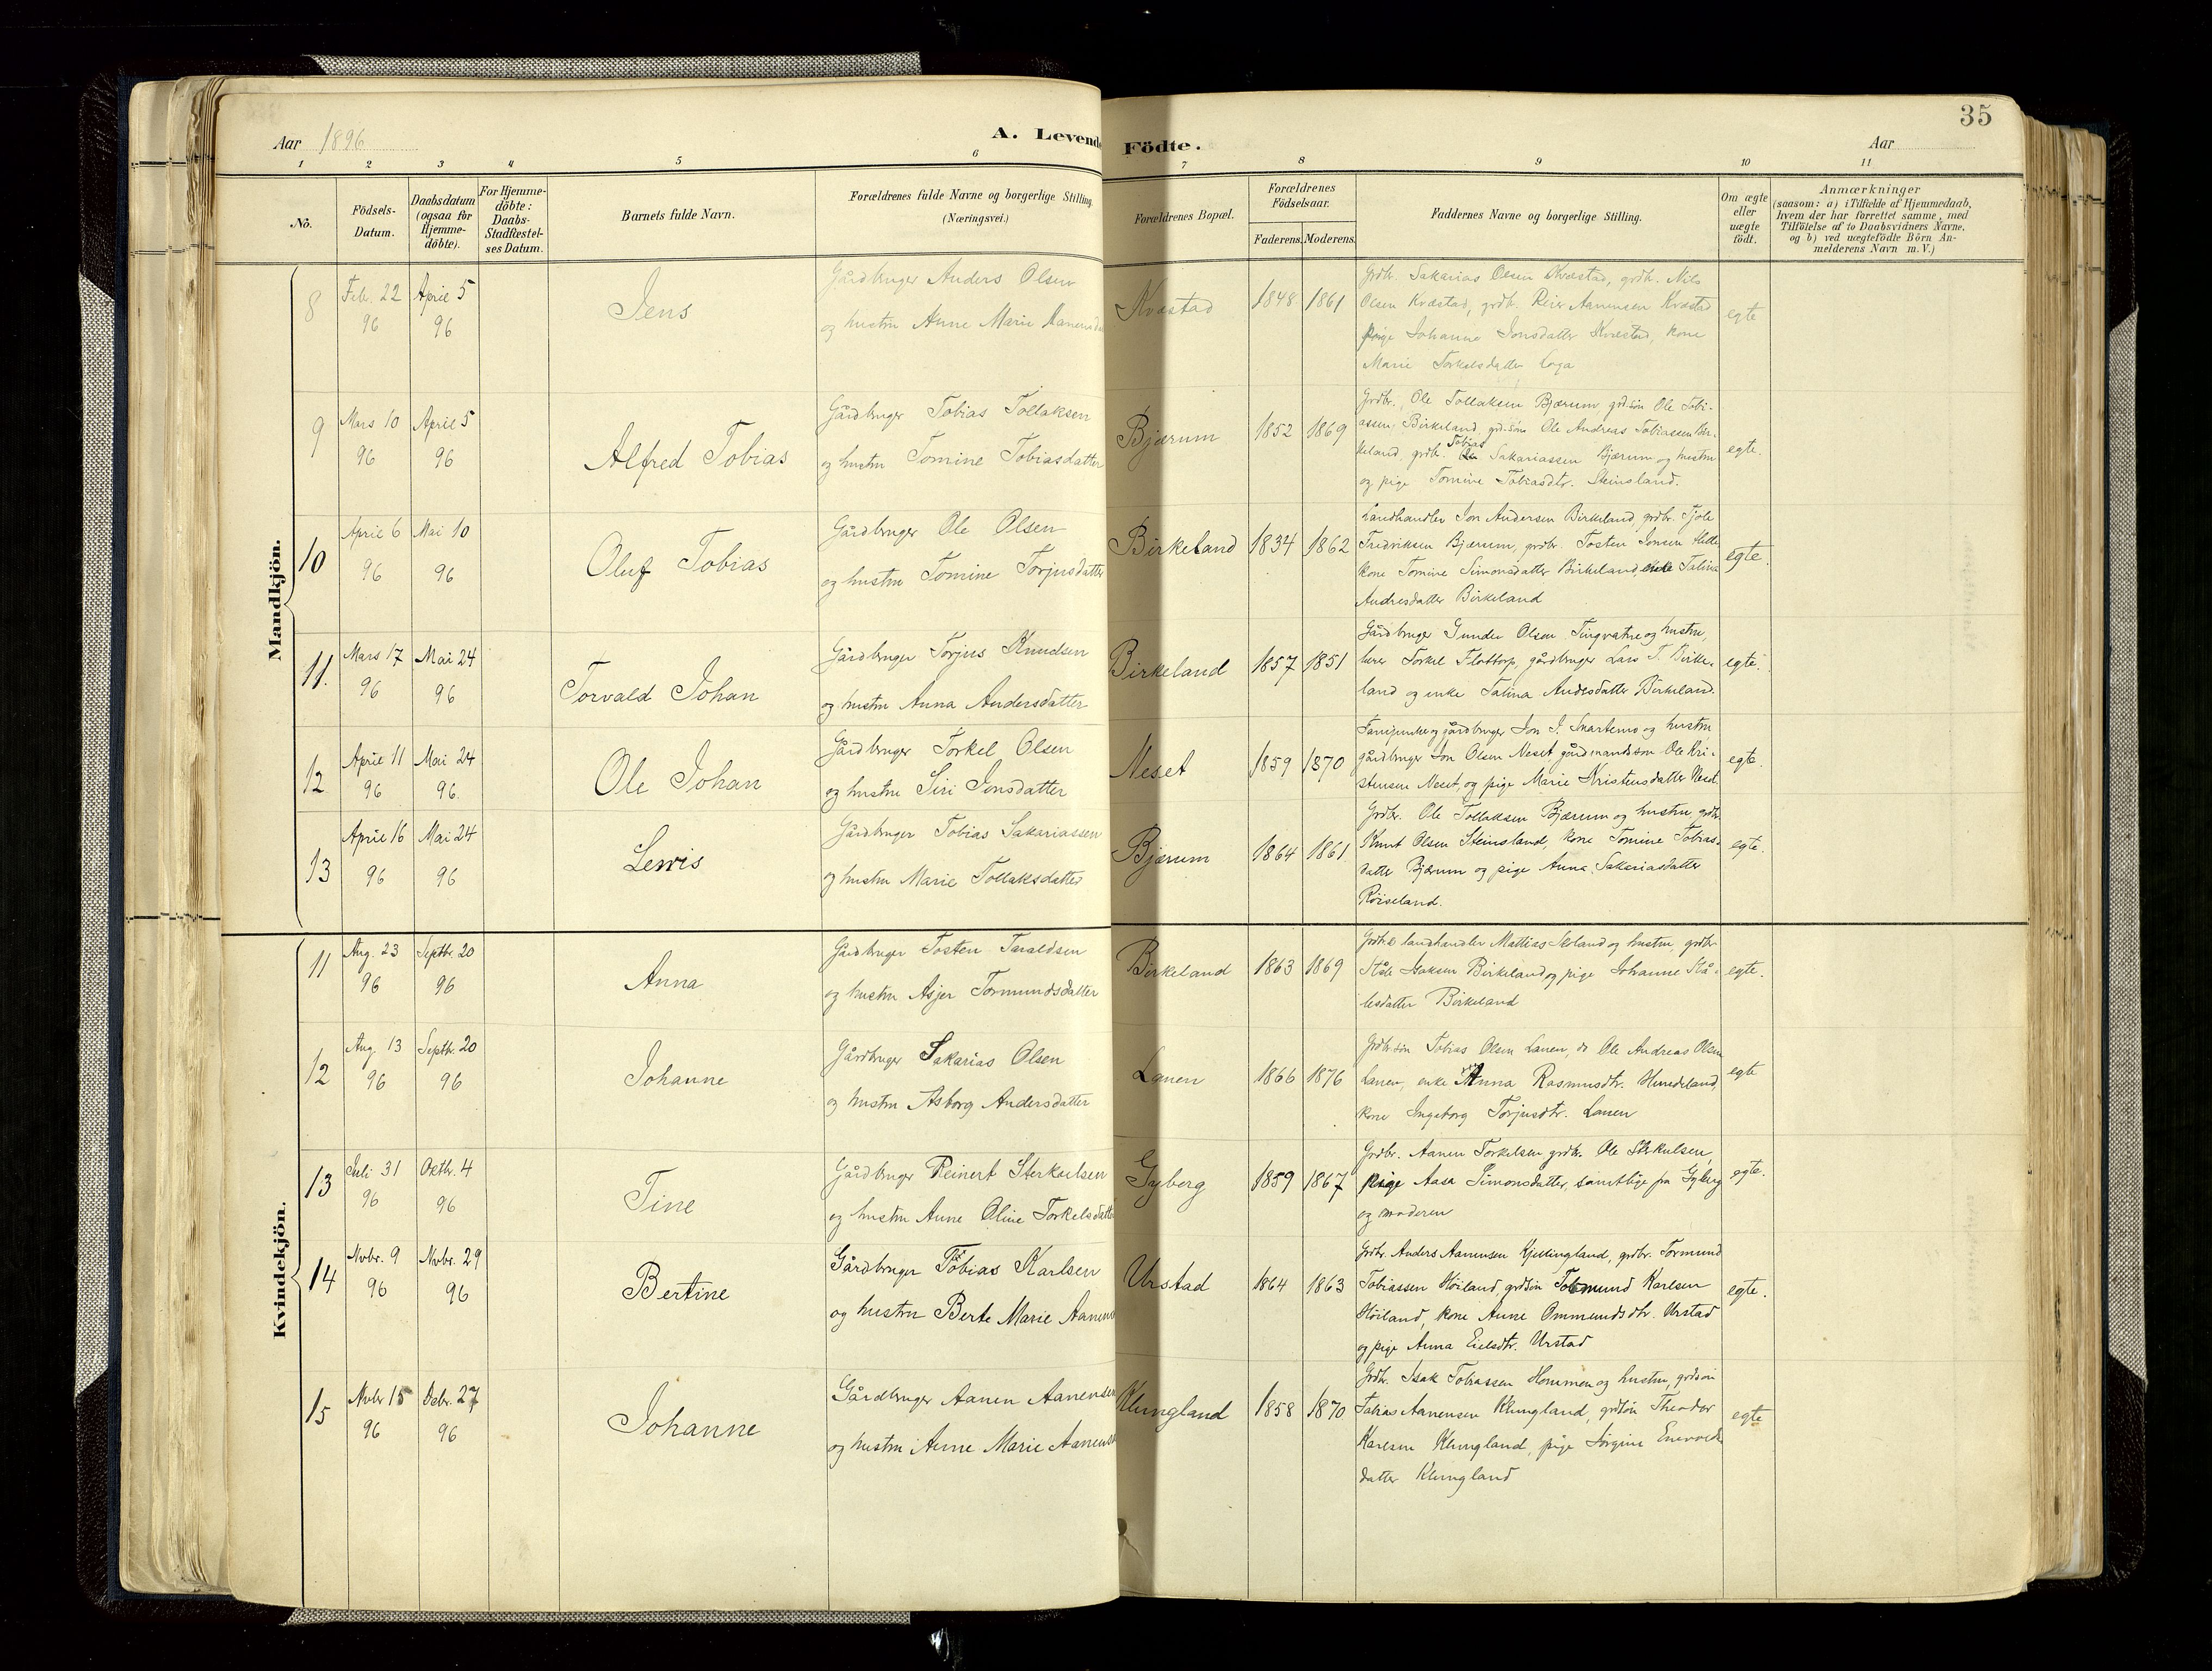 35
Aar 1896
A. Levende Födte.
Aar
1 2 3 4 5 6 7 8 9 10 11
No.
Födsels-
Datum.
Daabsdatum
(ogsaa for
Hjemme-
döbte).
For Hjemme-
döbte:
Daabs-
Stadfæstel-
ses Datum.
Barnets fulde Navn.
Forældrenes fulde Navne og borgerlige Stilling.
(Næringsvei.)
Forældrenes Bopæl.
Forældrenes
Födselsaar.
Faderens. Moderens.
Faddernes Navne og borgerlige Stilling.
Om ægte
eller
uægte
født.
Anmærkninger
(saasom: a) i Tilfælde af Hjemmedaab,
hvem der har forrettet samme, med
Tilföielse af to Daabsvidners Navne.
og b) ved uægtefödte Börn An-
melderens Navn m. V.)
Mandkjön.
8
Febr. 22
96
April 5
96
Jens
Gårdbruger Anders Olsen
og hustru Anne Marie
Kvæstad
1848 1861
Grdbr. Sakarias Olsen Kvæstad, grdb. Nils
Olsen Kvæstad, grdb. Reier Aanensen Kvæstad
pige Johanne Jonsdatter Kvæstad, kone
Marie Torkelsdatter Loga
egte
9
Mars 10
96
April 5
96
Alfred Tobias
Gårdbruger Tobias Tollaksen
og hustru Tomine Tobiasdatter
Bjærum
1852 1869
Grdbr. Ole Tollaksen Bjærum, grd.søn Ole Tobi-
assen Birkeland, grd.søn Ole Andreas Tobiassen Bir-
keland, grdb. Tobias Sakariassen Bjærum og hustru
og pige Tomine Tobiasdtr. Steinsland.
egte.
10
April 6
96
Mai 10
96
Oluf Tobias
Gårdbruger Ole Olsen
og hustru Tomine Torjusdatter
Birkeland
1834 1862
Landhandler Jon Andersen Birkeland, grdbr. Tjøle
Fredriksen Bjærum, grdbr. Tosten Jonsen
kone Tomine Simonsdatter Birkeland, enke Talina
Andresdatter Birkeland
egte.
11.
Mars 17
96
Mai 24
96
Torvald Johan
Gårdbruger Torjus Knudsen
og hustru Anna Andersdatter
Birkeland
1857 1851
Gårdbruger Gunder Olsen Tingvatne og hustru,
lærer Torkel Flottorp, gårdbruger Lars T. Birke-
land og enke Talina Andersdatter Birkeland.
egte.
12
April 11
96
Mai 24
96.
Ole Johan
Gårdbruger Torkel Olsen
og hustru Siri Jensdatter
Neset
1859 1870
og gårdbruger Jon J. Snartemo og hustru,
gårdbruger Jon Olsen Neset, gårdmandssøn Ole Kri-
stensen Neset, og pige Marie Kristensdatter Neset.
egte.
13
April 16
96
Mai 24
96
Lewis
Gårdbruger Tobias Sakariassen
og hustru Marie Tollaksdatter
Bjærum
1864 1861
Grdbr. Ole Tollaksen Bjærum og hustru, grdbr.
Knut Olsen Steinsland, kone Tomine Tobias-
datter Bjærum og pige Anna Sakariasdatter
Røiseland.
egte.
Kvindekjön.
11
Aug. 23
96
Septbr. 20
96
Anna
Gårdbruger Tosten Taraldsen
og hustru Asjer Tormundsdatter
Birkeland
1863 1869
Grdbr. & landhandler Mattias Seland og hustru, grdbr.
Ståle Isaksen Birkeland og pige Johanne Stå-
lesdatter Birkeland
egte.
12
Aug. 13
96
Septbr. 20
96
Johanne
Gårdbruger Sakarias Olsen
og hustru Asborg Andersdatter
Lauen
1866 1876
Grdbr.søn Tobias Olsen Lauen, do Ole Andreas Olsen
Lauen, enke Anna Rasmusdtr. Hunedeland,
kone Ingeborg Torjusdtr. Lauen
egte
13
Juli 31
96
Oktbr. 4
96
Tine
Gårdbruger Reinert Sterkulsen
og hustru Anne Oline Torkelsdatter
Gyberg
1859 1867
Grdbr. Aanen Torkelsen, grdb. Ole Sterkulsen,
pige Aasa Simonsdatter, samtlige fra Gyberg
og moderen
egte.
14
Novbr. 9
96
Novbr. 29
96
Bertine
Gårdbruger Tobias Karlsen
og hustru Berte Marie
Urstad
1864 1863
Grdbr. Anders Aanensen Kjellingland, grdbr. Tormund
Tobiassen Høiland, grdsøn Tormund Karlsen
Høiland, kone Anne Ommundsdtr. Urstad
og pige Anna Eielsdtr. Urstad
egte.
15
Novbr 15
96
Debr. 27
96
Johanne
Gårdbruger Aanen Aanensen
og hustru Anne Marie
Klungland
1858 1870
Grdbr. Isak Tobiassen Hommen og hustru, grdsøn
Tobias Aanensen Klungland, grdsøn Theodor
Karlsen Klungland, pige Jørgine
datter Klungland
egte